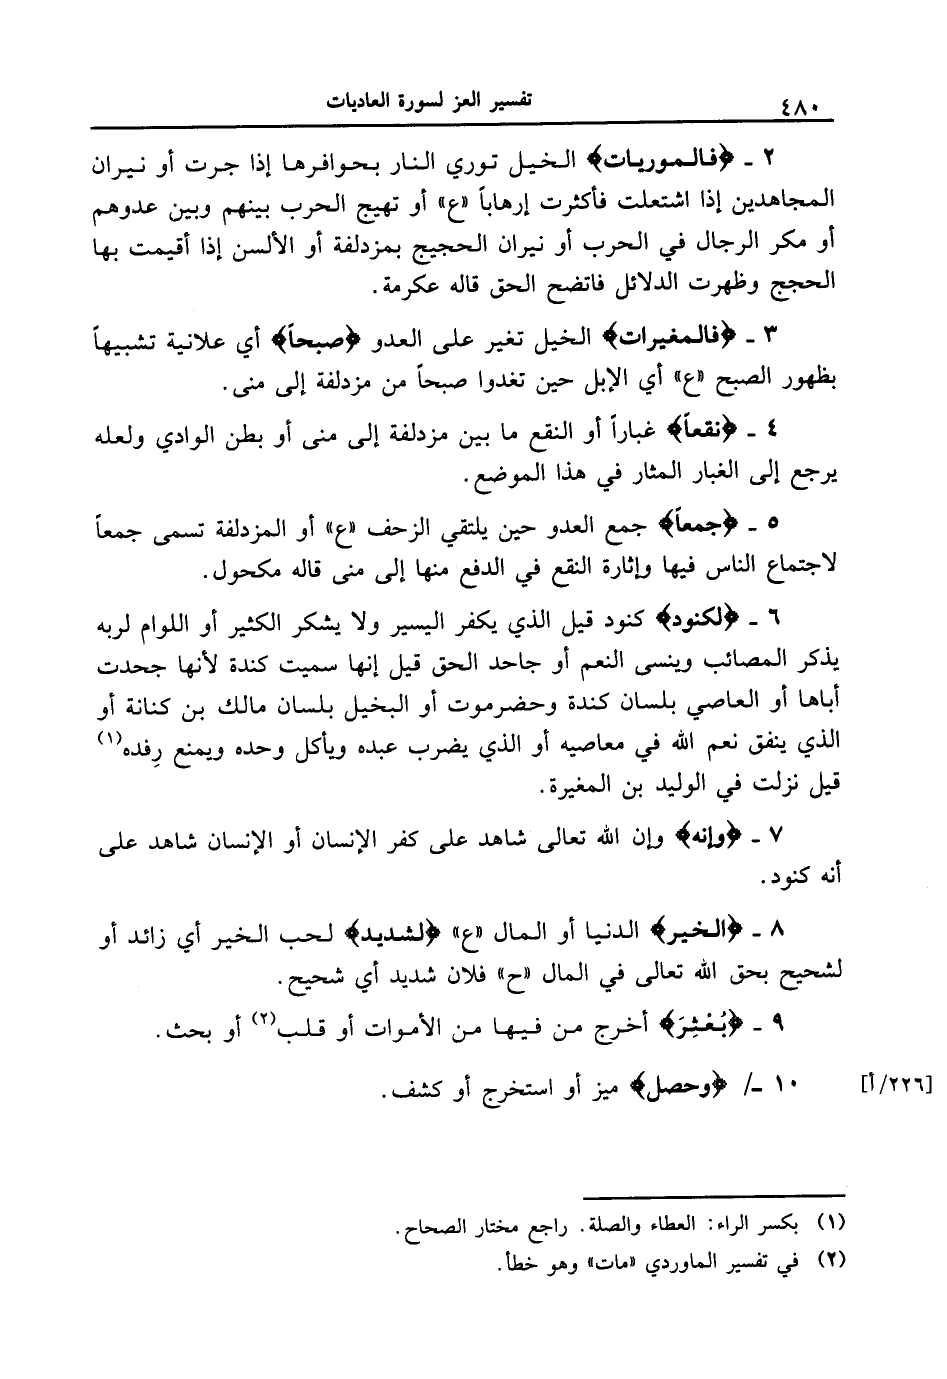 ٤٨٠ تفسير العز لسورة العاديات
٢ ـ ﴿فالموريات﴾ الخيل توري النار بحوافرها إذا جرت أو نيران
المجاهدين إذا اشتعلت فأكثرت إرهاباً «ع» أو تهيج الحرب بينهم وبين عدوهم
أو مكر الرجال في الحرب أو نيران الحجيج بمزدلفة أو الألسن إذا أقيمت بها
الحجج وظهرت الدلائل فاتضح الحق قاله عكرمة.
٣ ـ ﴿فالمغيرات﴾ الخيل تغير على العدو ﴿صبحاً﴾ أي علانية تشبيهاً
بظهور الصبح «ع» أي الإبل حين تغدوا صبحاً من مزدلفة إلى منى.
٤ ـ ﴿نقعاً﴾ غباراً أو النقع ما بين مزدلفة إلى منى أو بطن الوادي ولعله
يرجع إلى الغبار المثار في هذا الموضع.
٥ ـ ﴿جمعاً﴾ جمع العدو حين يلتقي الزحف «ع» أو المزدلفة تسمى جمعاً
لاجتماع الناس فيها وإثارة النقع في الدفع منها إلى منى قاله مكحول.
٦ ـ ﴿لكنود﴾ كنود قيل الذي يكفر اليسير ولا يشكر الكثير أو اللوام لربه
يذكر المصائب وينسى النعم أو جاحد الحق قيل إنها سميت كندة لأنها جحدت
أباها أو العاصي بلسان كندة وحضرموت أو البخيل بلسان مالك بن كنانة أو
الذي ينفق نعم الله في معاصيه أو الذي يضرب عبده ويأكل وحده ويمنع رِفده(١)
قيل نزلت في الوليد بن المغيرة.
٧ ـ ﴿وإنه﴾ وإن الله تعالى شاهد على كفر الإنسان أو الإنسان شاهد على
أنه كنود.
٨ ـ ﴿الخير﴾ الدنيا أو المال «ع» ﴿لشديد﴾ لحب الخير أي زائد أو
لشحيح بحق الله تعالى في المال «ح» فلان شديد أي شحيح.
٩ ـ ﴿بُعْثِرَ﴾ أخرج من فيها من الأموات أو قلب(٢) أو بحث.
[٢٢٦/أ] ١٠ ـ/ ﴿وحصل﴾ ميز أو استخرج أو كشف.
(١) بكسر الراء: العطاء والصلة. راجع مختار الصحاح.
(٢) في تفسير الماوردي «مات» وهو خطأ.